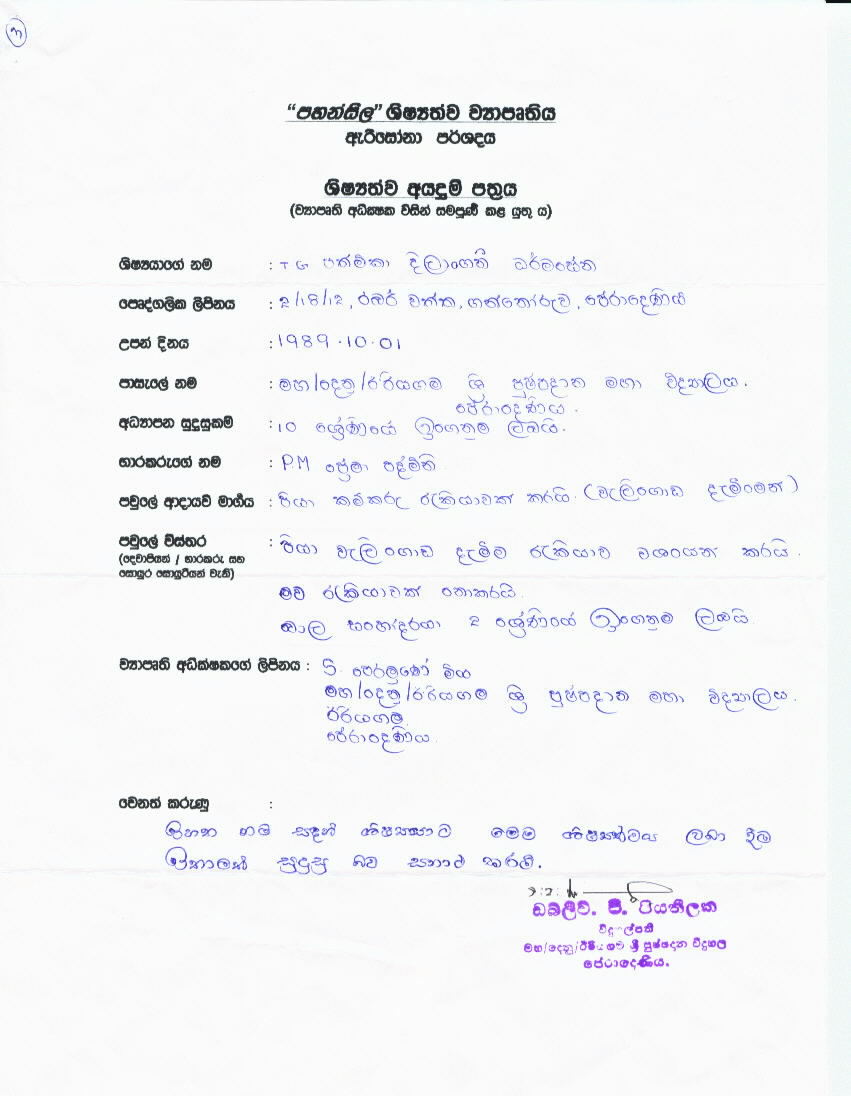 3
“පහන්සිල” ශිෂ්‍යත්ව ව්‍යාපෘතිය
ඇරිසෝනා පර්ශදය
ශිෂ්‍යත්ව අයදුම් පත්‍රය
(ව්‍යාපෘති අධීක්ෂක විසින් සම්පූර්ණ කළ යුතු ය)
ශිෂ්‍යයාගේ නම : T G පත්මිකා දිලාංගනී ධර්මසේන
පෞද්ගලික ලිපිනය : 2/18/12, රබර් වත්ත, ගන්නෝරුව, පේරාදෙණිය
උපන් දිනය : 1989.10.01
පාසැලේ නම : මහ/දෙනු/ඊරියගම ශ්‍රී පුෂ්පදාන මහා විද්‍යාලය.
පේරාදෙණිය.
අධ්‍යාපන සුදුසුකම් : 10 ශ්‍රේණියේ ඉගෙනුම ලබයි.
භාරකරුගේ නම : P.M ප්‍රේමා පද්මිනි
පවුලේ ආදායම් මාර්ගය : පියා කම්කරු රැකියාවක් කරයි. (වැලිගොඩ දැමීමෙන්)
පවුලේ විස්තර : පියා වැලිගොඩ දැමීම රැකියාව වශයෙන් කරයි.
(දෙමාපියන් / භාරකරු සහ
සොයුර සොයුරියන් වැනි)
මව රැකියාවක් නොකරයි.
බාල සහෝදරයා 2 ශ්‍රේණියේ ඉගෙනුම ලබයි.
ව්‍යාපෘති අධීක්ෂකගේ ලිපිනය : S. පෙරමුණේ මිය
මහ/දෙනු/ඊරියගම ශ්‍රී පුෂ්පදාන මහා විද්‍යාලය.
ඊරියගම
පේරාදෙණිය.
වෙනත් කරුණු :
ඉහත නම් සඳහන් ශිෂ්‍යයාට මෙම ශිෂ්‍යත්වය ලබා දීම
ඉතාමත් සුදුසු බව සහතික කරමි.
ඩබ්ලිව්. පී. පියතිලක
විදුහල්පති
මහ/දෙනු/ඊරියගම ශ්‍රී පුෂ්පදාන විදුහල
පේරාදෙණිය.